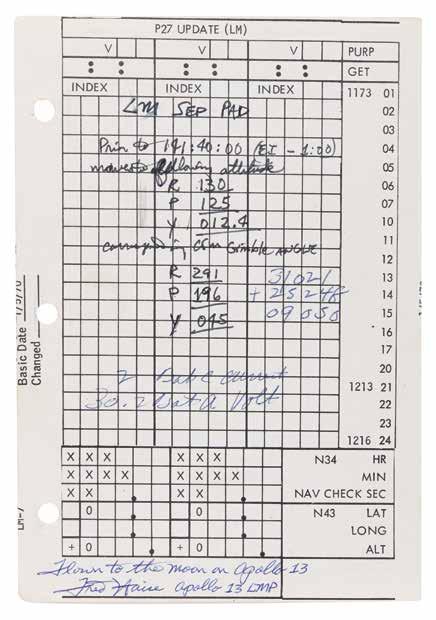 P27 UPDATE (LM)
V V V PURP
: : : : : : GET
INDEX INDEX INDEX 1173 01
LM SEP PAD 02
03
Prior to 141:40:00 (EI - 1:00) 04
maneuver to following attitude 05
R 130 06
P 125 07
Y 012.4 10
corresponding CSM Gimble ANGLE 11
12
R 291 31021 13
P 196 + 25246 14
Y 045 09050 15
16
17
20
2 Bat C current 1213 21
30.2 Bat A Volt 22
23
1216 24
X X X X X X N34 HR
X X X X X X X X MIN
X X X X NAV CHECK SEC
0 0 N43 LAT
LONG
+ 0 + 0 ALT
Basic Date 1/5/70
Changed
LM-7
Flown to the moon on Apollo 13
Fred Haise Apollo 13 LMP